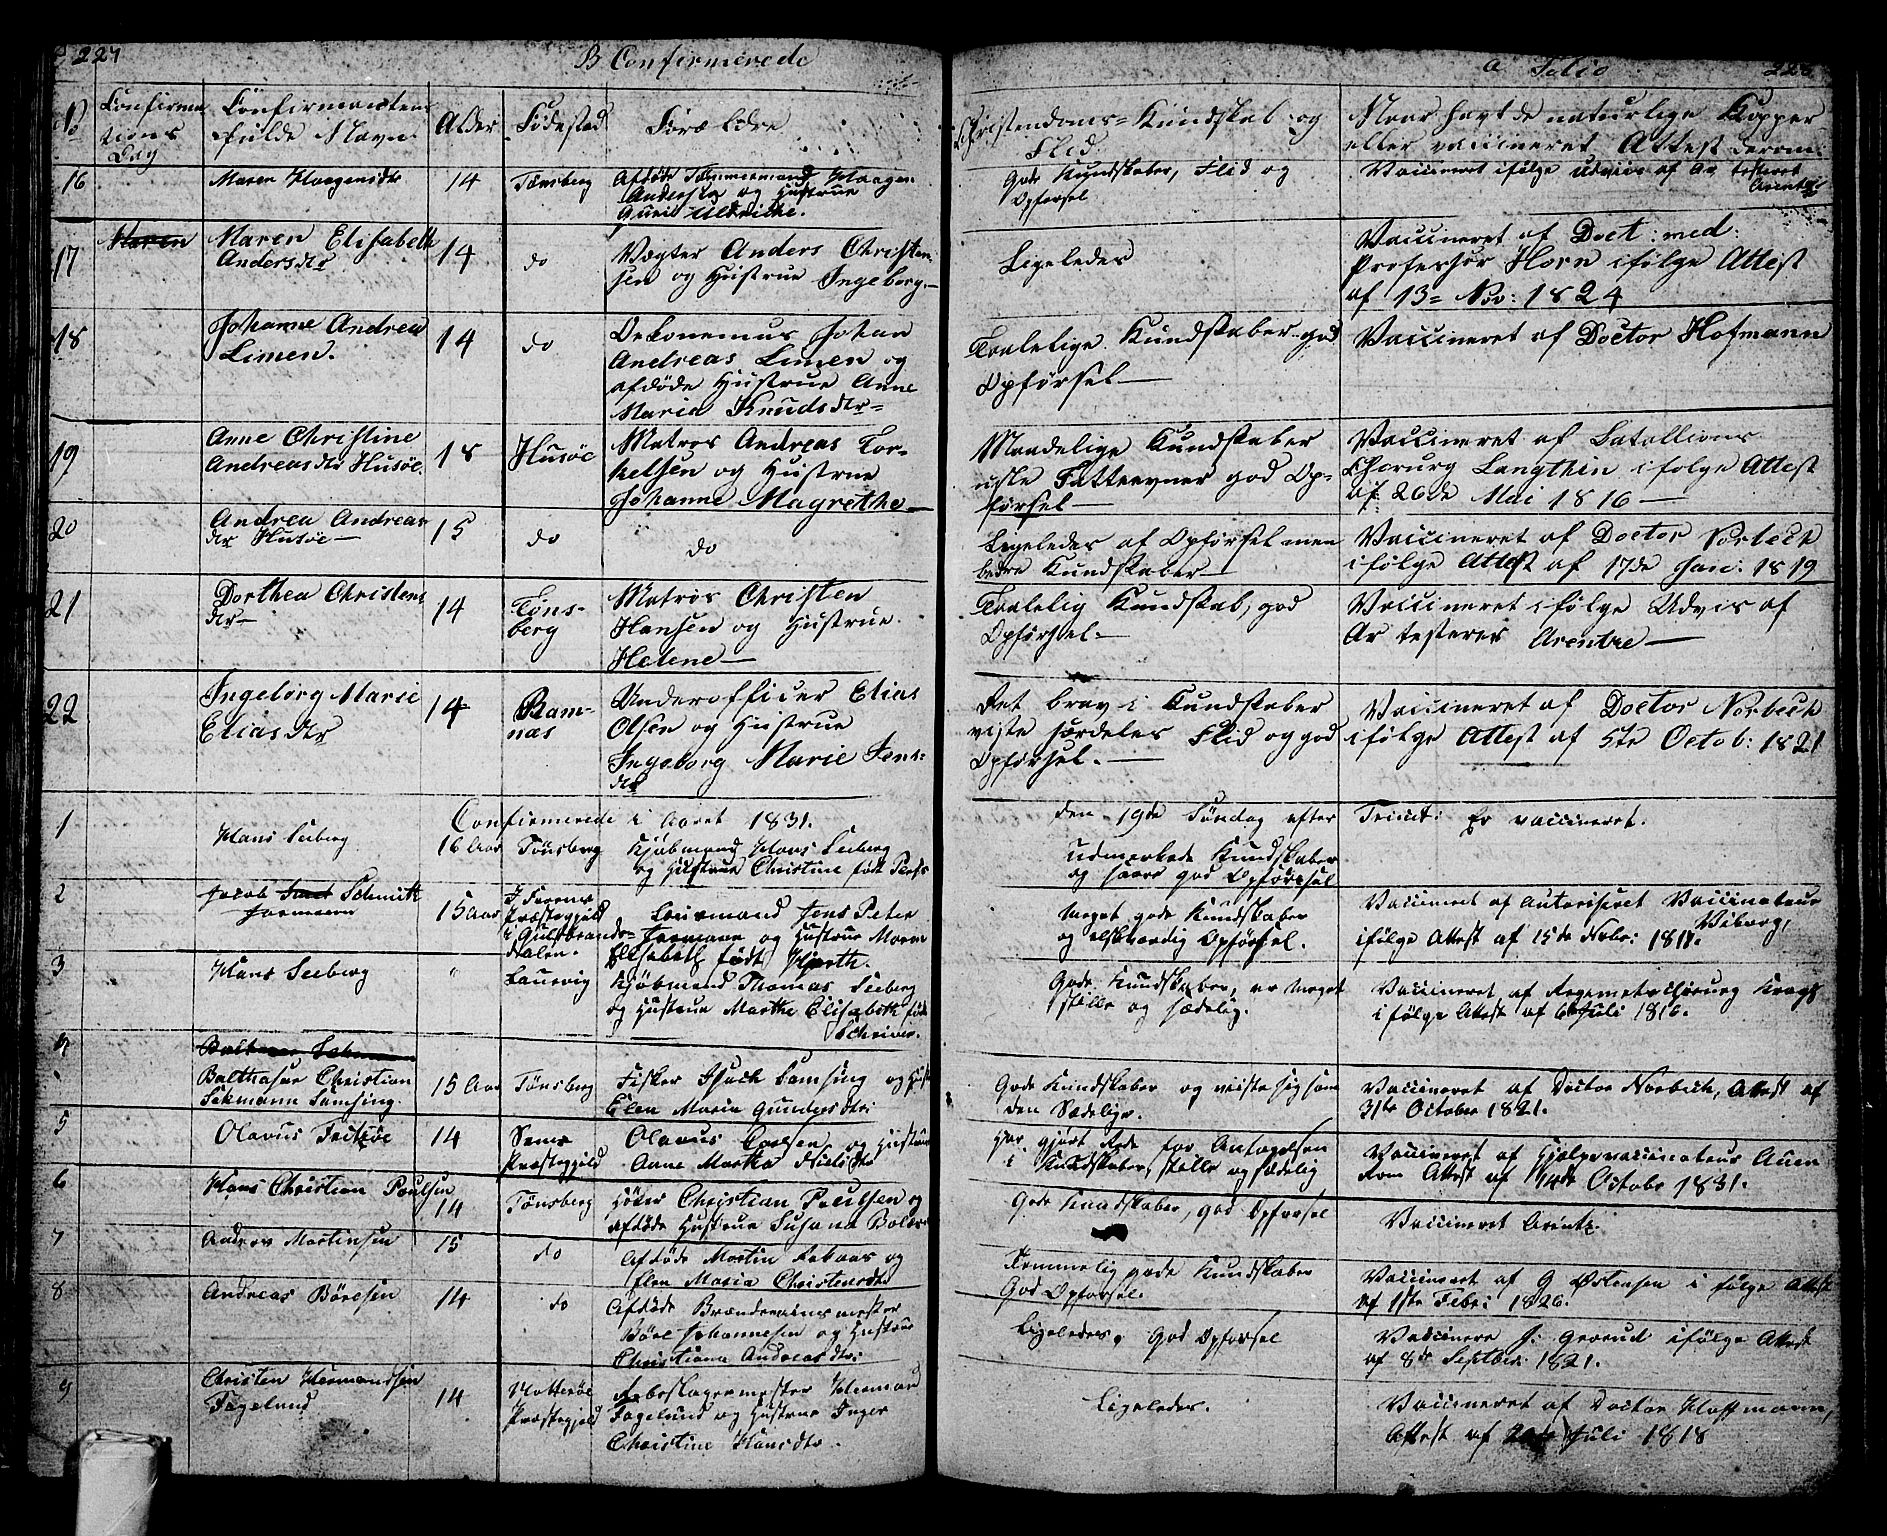 227
B Confirmerede
a Folio
228
No
Confirma
tions
Dag
Confirmantens
fulde Navn
Alder
Födested
Forældre
Christendoms-Kundskab og
Flid
Naar havt de naturlige Kopper
eller vaccineret Attest derom
16
Maren Haagensdtr
14
Tönsberg
Afdöde Tömmermand Haagen
Andersen og Hustrue
Guri Uldrikke.
Gode Kundskaber, Flid og
Opförsel
Vaccineret ifölge udviis af
Arentz
17
Maren
Maren Elisabeth
Andersdtr
14
do
Vægter Anders Christen
sen og Hustrue Ingeborg.
Ligeledes
Vaccineret af Doct: med:
Professor Horn ifölge Attest
af 13= Nov: 1824
18
Johanne Andrea
Limen.
14
do
Oekonomus Johan
Andreas Limen og
afdöde Hustrue Anne
Maria Knudsdtr
Taalelige Kundskaber god
Opförsel
Vaccineret af Doctor Hofmann
19
Anne Christine
Andreasdtr Husöe.
18
Husöe
Matros Andreas Tor-
kelsen og Hustrue
Johanne Magrethe
Maadelige Kundskaber
usle Fatteevner god Op-
försel
Vaccineret af Batallions
Chirurg Langthin ifölge Attest
af 26de Mai 1816
20
Andrea Andreas
dtr Husöe
15
do
do
Ligeledes af Opförsel men
bedre Kundskaber
Vaccineret af Doctor Norbech
ifölge Attest af 17de Jan: 1819
21
Dorthea Christens
dtr
14
Töns-
berg
Matros Christen
Hansen og Hustrue
Helene
Taalelig Kundskab, god
Opförsel
Vaccineret ifölge Udvis af
Arentze
22
Ingebörg Marie
Eliasdtr
14
Ram-
næs
Underofficer Elias
Olsen og Hustrue
Ingeborg Marie Jens-
dtr
Det brav i Kundskaber
viste særdeles Flid og god
Opförsel.
Vaccineret af Doctor Norbech
ifölge Attest af 5te Octob: 1821
Confirmerede i Aaret 1831.
den 19de Söndag efter
Trinit:
1
Hans Seeberg
16 Aar
Tönsberg
Kjöbmand Hans Seeberg
og Hustrue Christine född
Udmærkede Kundskaber
og saare god Opförsel
Er vaccineret.
2
Jacob Schmidt
Jormann
15 Aar
Præstegjeld
i Gulbrands-
dalen.
Lensmand Jens Peter
Jormann og Hustrue Maren
Elisabeth född Hjorth.
Meget gode Kundskaber
og elskværdig Opförsel.
Vaccineret af autoriseret Vaccinateur
Viborg,
ifölge Attest af 15de Novbr: 1817.
3
Hans Seeberg
"
Laurvig
Kjöbmand Thomas Seeberg
og Hustrue Marthe Elisabeth född
Schriver.
Gode Kundskaber, er meget
stille og sædelig.
Vaccineret af Regimetschirurg Kragh
ifölge Attest af 6te Juli 1816.
4
Balthasar Christian
Sehmann Samsing.
15 Aar
Tönsberg
Fisker Isach Samsing og Hust
Elen Maria Gundersdtr:
Gode Kundskaber og viiste sig som
den Sædelige.
Vaccineret af Doctor Norbech, Attest af
31te October 1821.
5
Olavus Fritzöe
14
Sems
Præstegjeld
Olavus Corsen og Hustrue
Anne Martha Nielsdtr
Har gjort Rede for Antagelsen
i Kundskaber, stille og sædelig
Vaccineret af Hjelpevaccinateur Auen
Rom Attest af 14de Octobr 1831.
6
Hans Christian Poulsen
14
Tönsberg
Höker Christian Poulsen og
afdöde Hustrue Susana
Gode Kundskaber, god Opförsel
Vaccineret Arentz.
7
Andreas Martinsen
15
do
Afdöde Martin Aakaas og
Elen Maria Christensdtr
Temmelig gode Kundskaber
God Opförsel.
Vaccineret af G Östensen i fölge Attest
af 1ste Febr: 1826.
8
Andreas Böresen
14
do
Afdöde Brændeviinsmester
Böre Johannesen og Hustrue
Christiana Andreasdtr:
Ligeledes, God Opförsel
Vaccinere J: Grorud ifölge Attest
af 8de Septbr: 1821.
9
Christen Hermandsen
Fagelund
14
Nötteröe
Præstegjeld
Reberslagermester Hermand
Fagelund og Hustrue Inger
Christine Hansdtr.
Ligeledes.
Vaccineret af Doctor Hoffmann,
Attest af Juli 1818